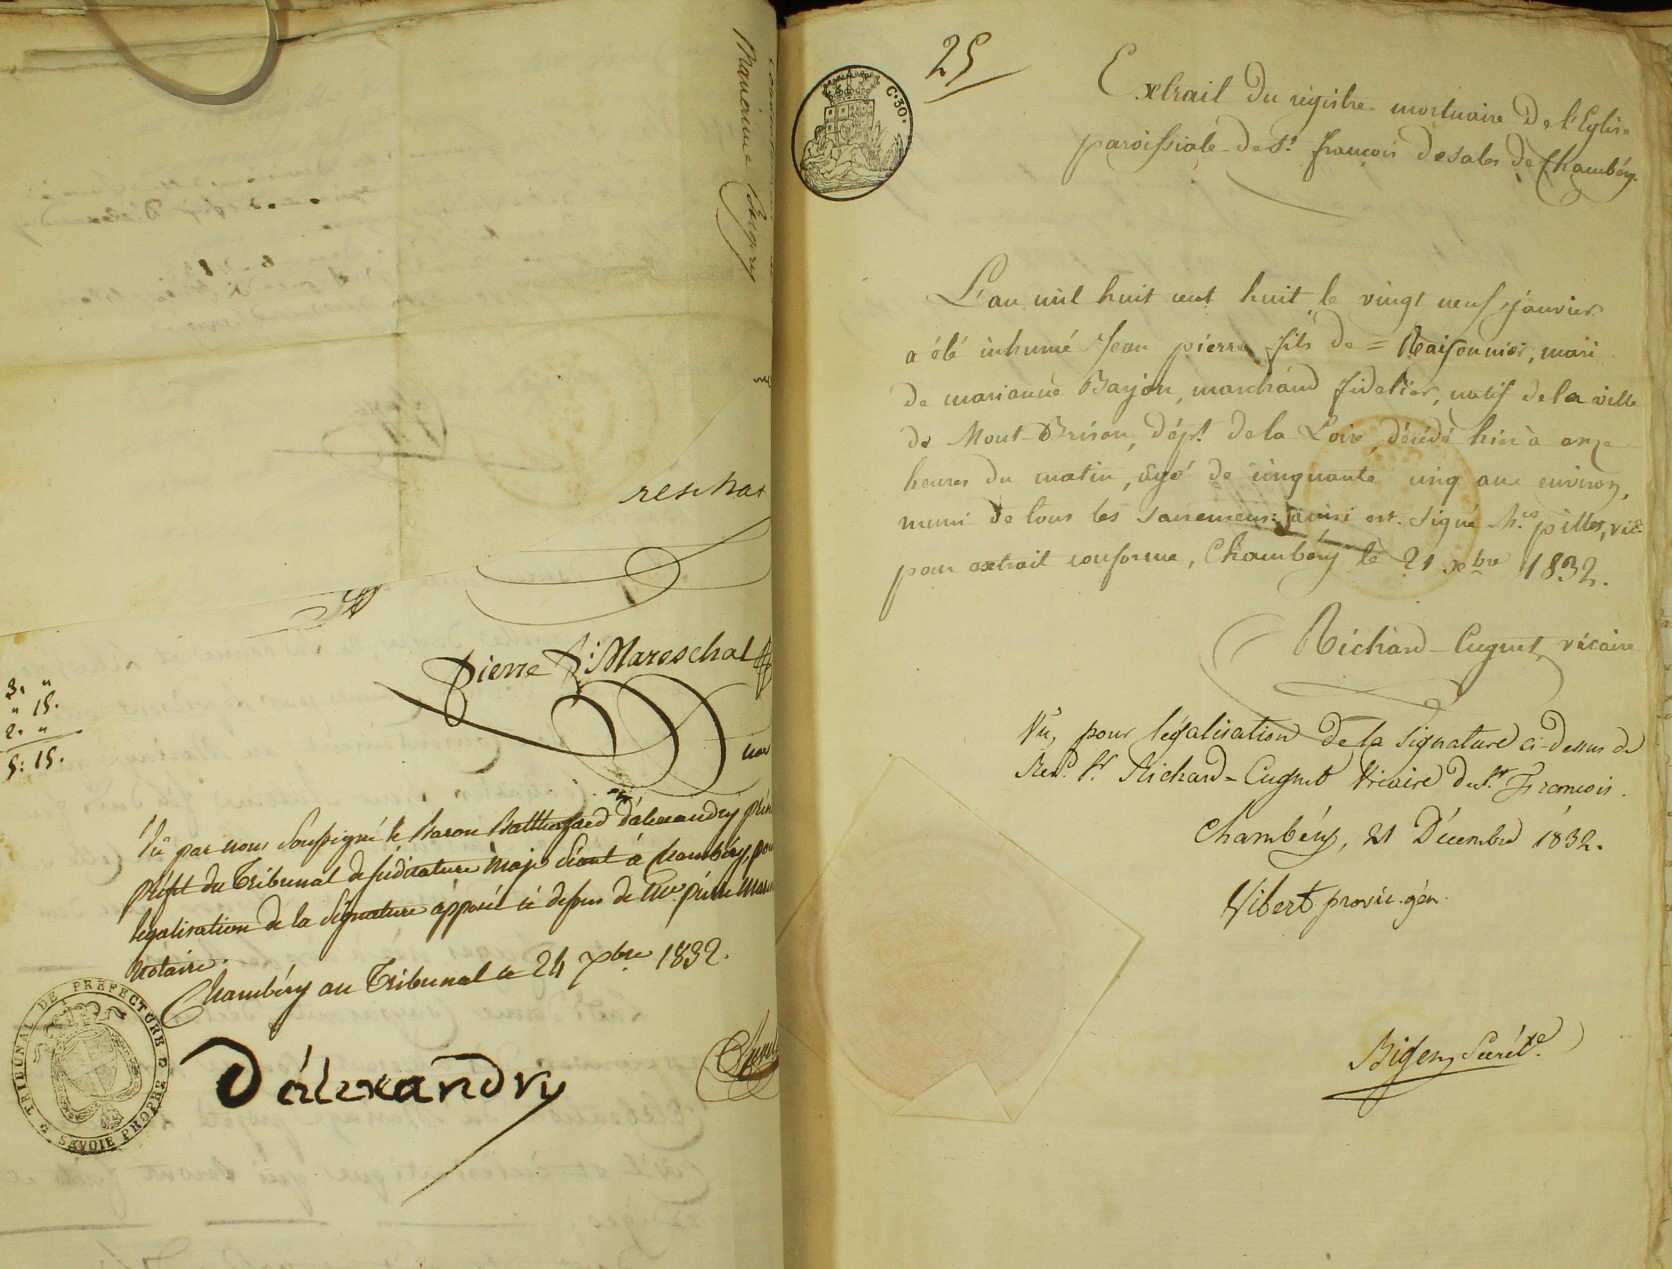 Marianne
reschal
Pierre Mareschal
3. "
" 15.
2. "
5: 15.
Vu par nous soussigné le Baron d'alexandry
préfet du Tribunal de judicature Maje séant à Chambéry, pour
légalisation de la signature apposée ci dessus de Me. pierre Mares
Notaire.
Chambéry au Tribunal ce 24 7bre 1832.
D'alexandry
TRIBUNAL DE PREFECTURE DE SAVOIE PROPRE
C. 30.
25
Extrait du régistre mortuaire De l'Eglise
paroissiale de St. françois desales de Chambéry.
L'an mil huit cent huit le vingt neuf janvier
a été inhumé Jean pierre fils de = Raisonnier, mari
de marianne Barjon, marchand fidelier, natif de la ville
de Mont-Brison, dépt. de la Loire, décédé hier à onze
heures du matin, agé de cinquante cinq ans environ,
muni de tous les sacremens: ainsi est signé pillet, vic.
pour extrait conforme, Chambéry le 21 xbre 1832.
Richard-Cugnet, vicaire
Vu, pour légalisation de la signature ci-dessus de
Revd. Sr. Richard-Cugnet Vicaire de St. François.
Chambéry, 21 Décembre 1832.
Vibert provic. gén.
Secrétre.